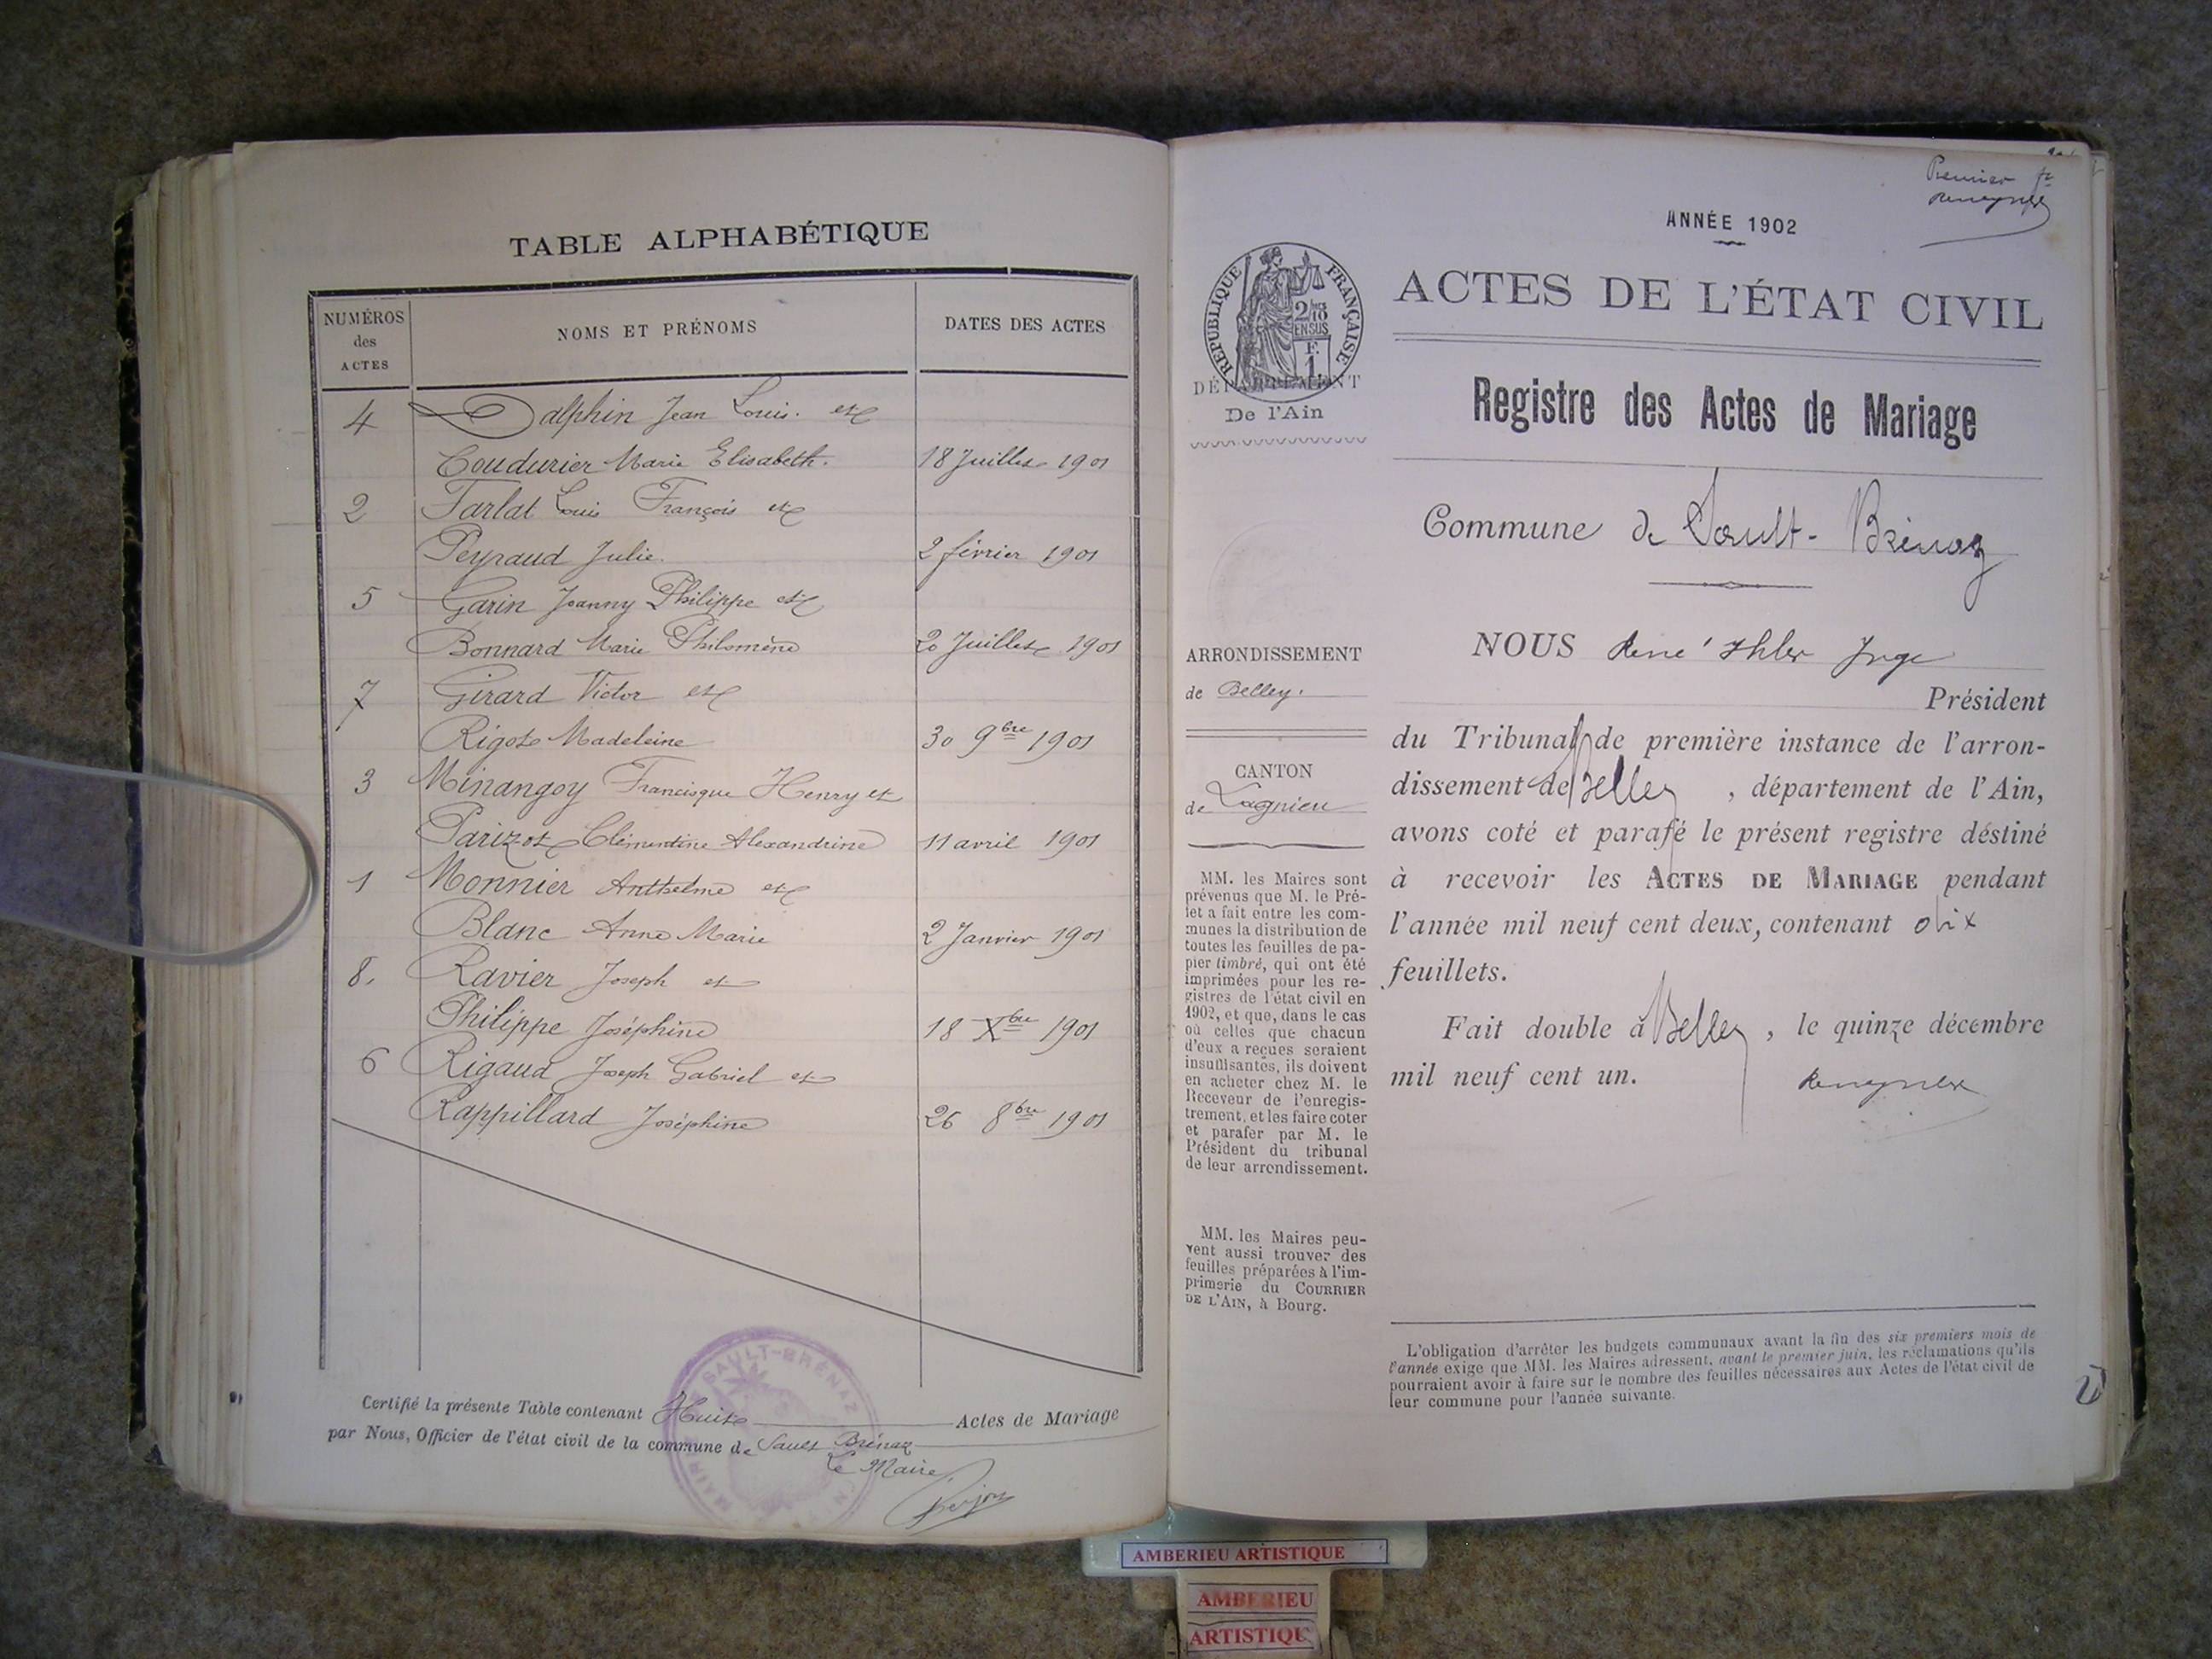 TABLE ALPHABÉTIQUE
NUMÉROS des ACTES
NOMS ET PRÉNOMS
DATES DES ACTES
4 Dalphin Jean Louis. et
Coudurier Marie Elisabeth. 18 Juillet 1901
2 Tarlat Louis François et
Peyraud Julie. 2 février 1901
5 Garin Joanny Philippe et
Bonnard Marie Philomène 20 Juillet 1901
7 Girard Victor et
Rigot Madeleine 30 9bre 1901
3 Minangoy Francisque Henry et
Parizot Clémentine Alexandrine 11 avril 1901
1 Monnier Anthelme et
Blanc Anne Marie 2 Janvier 1901
8. Ravier Joseph et
Philippe Joséphine 18 Xbre 1901
6 Rigaud Joseph Gabriel et
Rappillard Joséphine 26 8bre 1901
Certifié la présente Table contenant Huit Actes de Mariage
par Nous, Officier de l'état civil de la commune de Sault Brénaz
Le Maire
MAIRIE SAULT-BRÉNAZ
Premier ft
ANNÉE 1902
RÉPUBLIQUE FRANÇAISE
2/10 EN SUS
F. 1
ACTES DE L'ÉTAT CIVIL
DÉPARTEMENT
De l'Ain
Registre des Actes de Mariage
Commune de Sault-Brénaz
ARRONDISSEMENT
de Belley.
CANTON
de Lagnieu
MM. les Maires sont
prévenus que M. le Pré-
fet a fait entre les com-
munes la distribution de
toutes les feuilles de pa-
pier timbré, qui ont été
imprimées pour les re-
gistres de l'état civil en
1902, et que, dans le cas
où celles que chacun
d'eux a reçues seraient
insuffisantes, ils doivent
en acheter chez M. le
Receveur de l'enregis-
trement, et les faire coter
et parafer par M. le
Président du tribunal
de leur arrondissement.
MM. les Maires peu-
vent aussi trouver des
feuilles préparées à l'im-
primerie du COURRIER
DE L'AIN, à Bourg.
NOUS René Ihler Juge
Président
du Tribunal de première instance de l'arron-
dissement de Belley, département de l'Ain,
avons coté et parafé le présent registre déstiné
à recevoir les ACTES DE MARIAGE pendant
l'année mil neuf cent deux, contenant dix
feuillets.
Fait double à Belley, le quinze décembre
mil neuf cent un.
L'obligation d'arrêter les budgets communaux avant la fin des six premiers mois de
l'année exige que MM. les Maires adressent, avant le premier juin, les réclamations qu'ils
pourraient avoir à faire sur le nombre des feuilles nécessaires aux Actes de l'état civil de
leur commune pour l'année suivante.
AMBERIEU ARTISTIQUE
AMBERIEU
ARTISTIQU